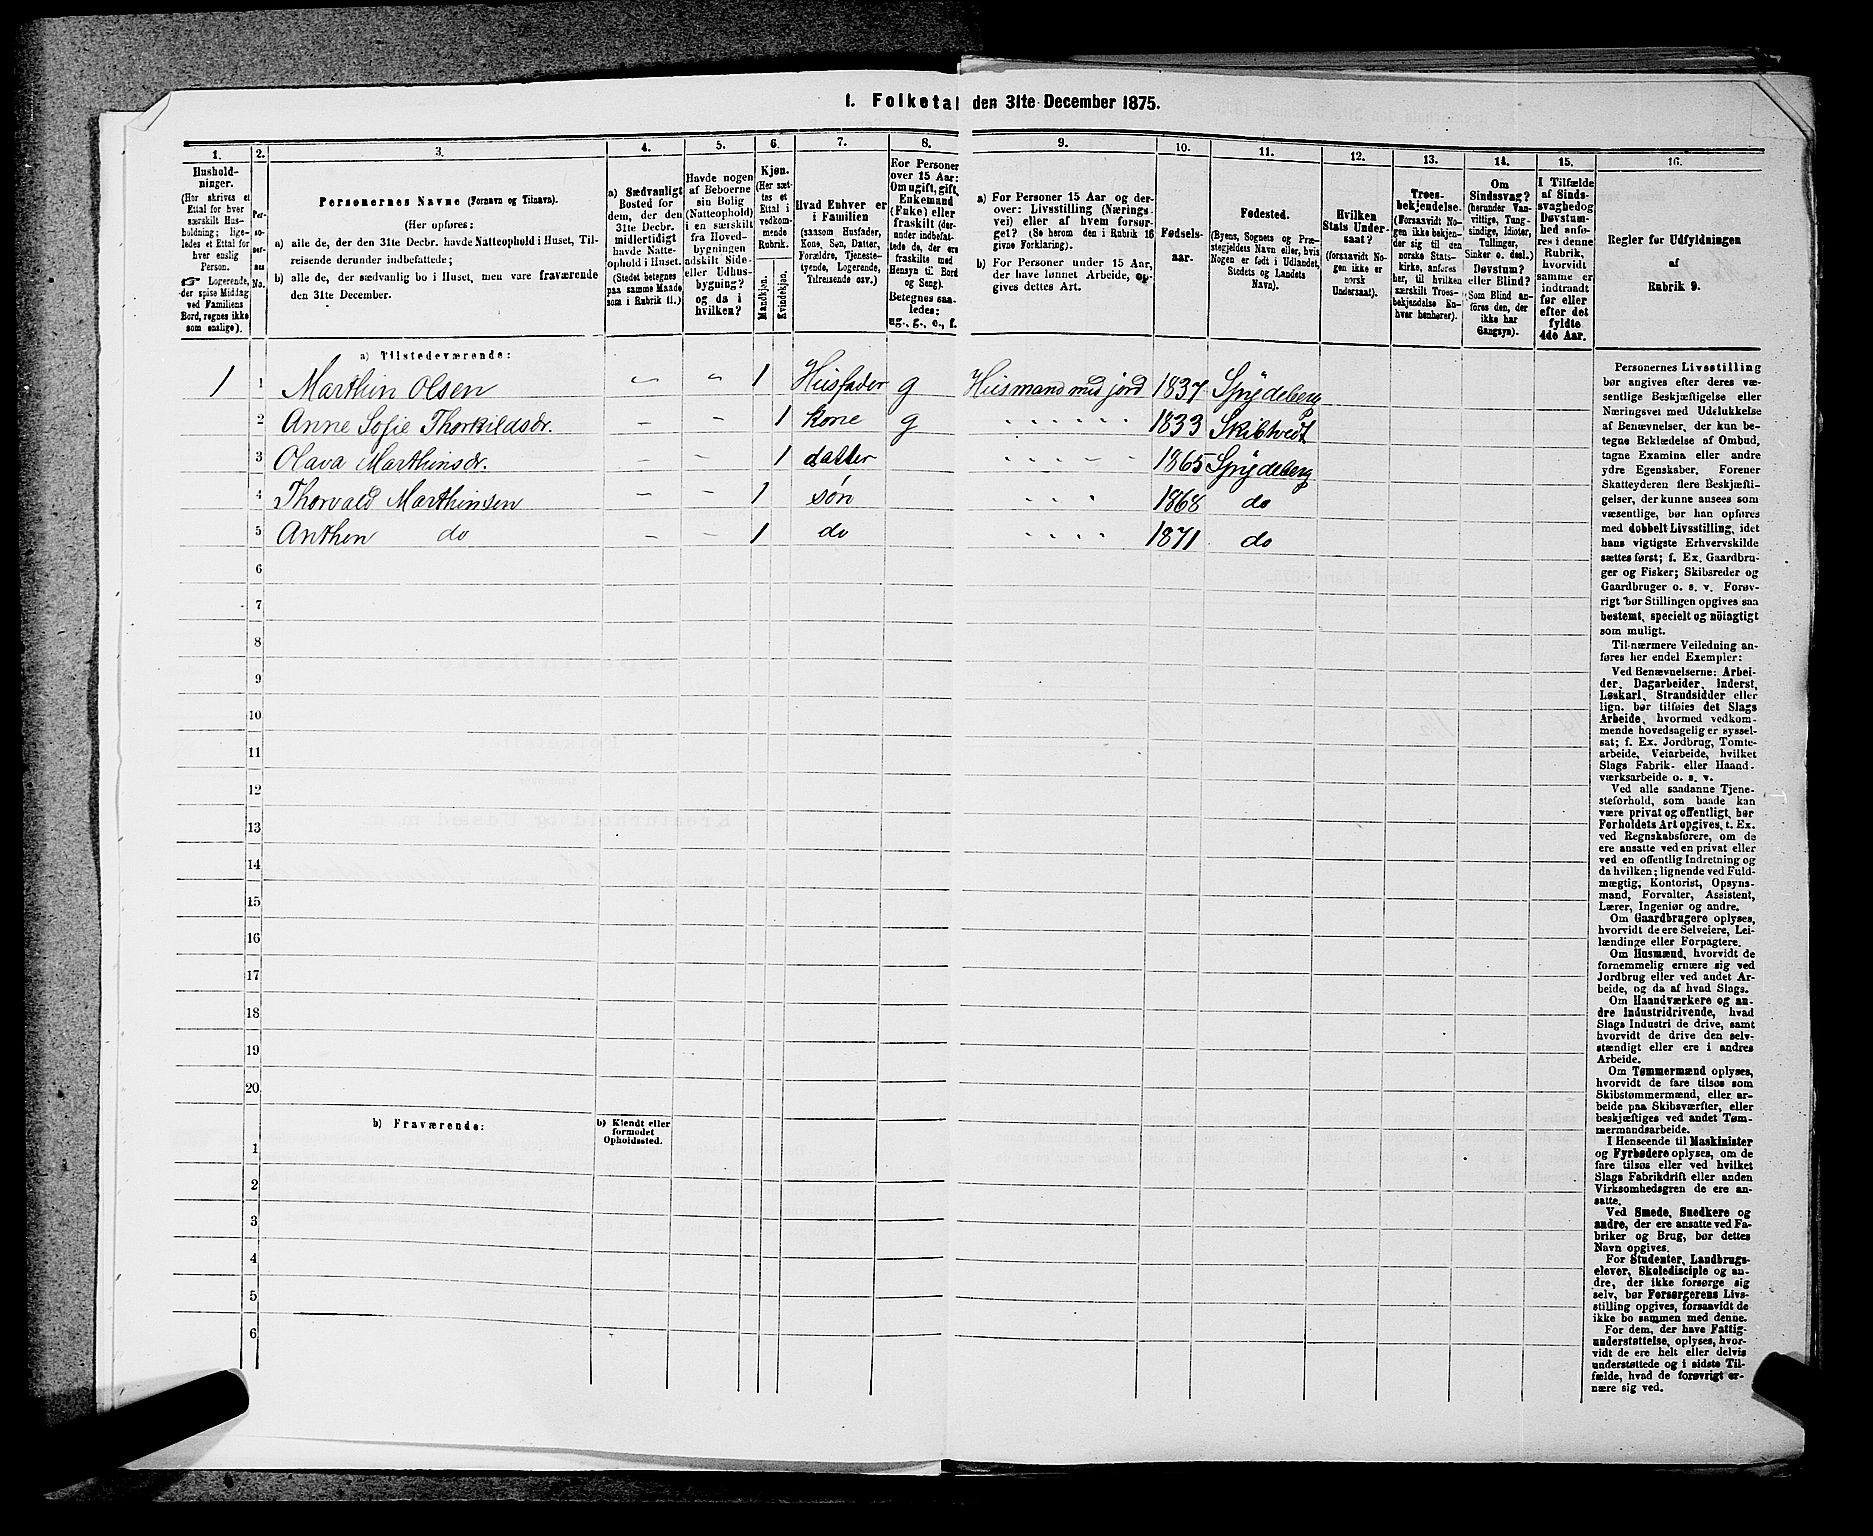 I. Folketal den 31te December 1875.
1.
2.
3.
4.
5.
6.
7.
8.
9.
10.
11.
12.
13.
14.
15.
16.
Hushold-
ninger.
(Her skrives et
Ettal for hver
særskilt Hus-
holdning; lige-
ledes et Ettal for
hver enslig
Person.
☞ Logerende,
der spise Middag
ved Familiens
Bord, regnes ikke
som enslige).
Per-
so-
ner-
nes
No.
Personernes Navne (Fornavn og Tilnavn).
(Her opføres:
a) alle de, der den 31te Decbr. havde Natteophold i Huset, Til-
reisende derunder indbefattede;
b) alle de, der sædvanlig bo i Huset, men vare fraværende
den 31te December.
a) Sædvanligt
Bosted for
dem, der den
31te Decbr.
midlertidigt
havde Natte-
ophold i Huset.
(Stedet betegnes
paa samme Maade
som i Rubrik 11.)
Havde nogen
af Beboerne
sin Bolig
(Natteophold)
i en særskilt
fra Hoved-
bygningen
adskilt Side-
eller Udhus-
bygning?
og da i
hvilken?
Kjøn.
(Her sæt-
tes et
Ettal i
vedkom-
mende
Rubrik.
Mandkjøn.
Kvindekjøn.
Hvad Enhver er
i Familien
(saasom Husfader,
Kone, Søn, Datter,
Forældre, Tjeneste-
tyende, Logerende,
Tilreisende osv.)
For Personer
over 15 Aar:
Om ugift, gift,
Enkemand
(Enke) eller
fraskilt (der-
under indbefat-
tede de, der ere
fraskilte med
Hensyn til Bord
og Seng).
Betegnes saa-
ledes:
ug., g., e., f.
a) For Personer 15 Aar og der-
over: Livsstilling (Nærings-
vei) eller af hvem forsør-
get? (Se herom den i Rubrik 16
givne Forklaring).
b) For Personer under 15 Aar,
der have lønnet Arbeide, op-
gives dettes Art.
Fødsels-
aar.
Fødested.
(Byens, Sognets og Præ-
stegjeldets Navn eller, hvis
Nogen er født i Udlandet,
Stedets og Landets
Navn).
Hvilken
Stats Under-
saat?
(forsaavidt No-
gen ikke er
norsk
Undersaat).
Troes-
bekjendelse.
(Forsaavidt No-
gen ikke bekjen-
der sig til den
norske Stats-
kirke, anføres
her, til hvilken
særskilt Troes-
bekjendelse En-
hver henhører).
Om
Sindssvag?
(herunder Van-
vittige, Tung-
sindige, Idioter,
Tullinger,
Sinker o. desl.)
Døvstum?
eller Blind?
(Som Blind an-
føres den, der
ikke har
Gangsyn).
I Tilfælde
af Sinds-
svaghed og
Døvstum-
hed anfø-
res i denne
Rubrik,
hvorvidt
samme er
indtraadt
før eller
efter det
fyldte
4de Aar.
Regler for Udfyldningen
af
Rubrik 9.
a) Tilstedeværende:
1 1 Marthin Olsen 1 Husfader g Husmand med jord 1837 Spydeberg
2 Anne Sofie Thorkildsdr. 1 kone g 1833 Skibtvedt
3 Olava Marthinsdr. 1 datter 1865 Spydeberg
4 Thorvald Marthinsen 1 søn 1868 do
5 Anthen do 1 do 1871 do
6
7
8
9
10
11
12
13
14
15
16
17
18
19
20
b) Fraværende:
b) Kjendt eller
formodet
Opholdssted.
1
2
3
4
5
6
Personernes Livsstilling
bør angives efter deres væ-
sentlige Beskjæftigelse eller
Næringsvei med Udelukkelse
af Benævnelser, der kun be-
tegne Beklædelse af Ombud,
tagne Examina eller andre
ydre Egenskaber. Forener
Skatteyderen flere Beskjæfti-
gelser, der kunne ansees som
væsentlige, bør han opføres
med dobbelt Livsstilling, idet
hans vigtigste Erhvervskilde
sættes først; f. Ex. Gaardbru-
ger og Fisker; Skibsreder og
Gaardbruger o. s. v. Forøv-
rigt bør Stillingen opgives saa
bestemt, specielt og nöiagtigt
som muligt.
Til nærmere Veiledning an-
føres her endel Exempler:
Ved Benævnelserne: Arbei-
der, Dagarbeider, Inderst,
Løskarl, Strandsidder eller
lign. bør tilføies det Slags
Arbeide, hvormed vedkom-
mende hovedsagelig er syssel-
sat; f. Ex. Jordbrug, Tomte-
arbeide, Veiarbeide, hvilket
Slags Fabrik- eller Haand-
værksarbeide o. s. v.
Ved alle saadanne Tjene-
steforhold, som baade kan
være privat og offentligt, bør
Forholdets Art opgives, t. Ex.
ved Regnskabsførere, om de
ere ansatte ved en privat eller
ved en offentlig Indretning og
da hvilken; lignende ved Fuld-
mægtig, Kontorist, Opsyns-
mand, Forvalter, Assistent,
Lærer, Ingeniør og andre.
Om Gaardbrugere oplyses,
hvorvidt de ere Selveiere, Lei-
lændinge eller Forpagtere.
Om Husmænd, hvorvidt de
fornemmelig ernære sig ved
Jordbrug eller ved andet Ar-
beide, og da af hvad Slags.
Om Haandværkere og an-
dre Industridrivende, hvad
Slags Industri de drive, samt
hvorvidt de drive den selv-
stændigt eller ere i andres
Arbeide.
Om Tømmermænd oplyses,
hvorvidt de fare tilsøs som
Skibstømmermænd, eller ar-
beide paa Skibsværfter, eller
beskjæftiges ved andet Tøm-
mermandsarbeide.
I Henseende til Maskinister
og Fyrbødere oplyses, om de
fare tilsøs eller ved hvilket
Slags Fabrikdrift eller anden
Virksomhedsgren de ere an-
satte.
Ved Smede, Snedkere og
andre, der ere ansatte ved Fa-
briker og Brug, bør dettes
Navn opgives.
For Studenter, Landbrugs-
elever, Skoledisciple og an-
dre, der ikke forsørge sig
selv, bør Forsørgerens Livs-
stilling opgives, forsaavidt de
ikke bo sammen med denne.
For dem, der have Fattig-
understøttelse, oplyses, hvor-
vidt de ere helt eller delvis
understøttede og i sidste Til-
fælde, hvad de forøvrigt er-
nære sig ved.